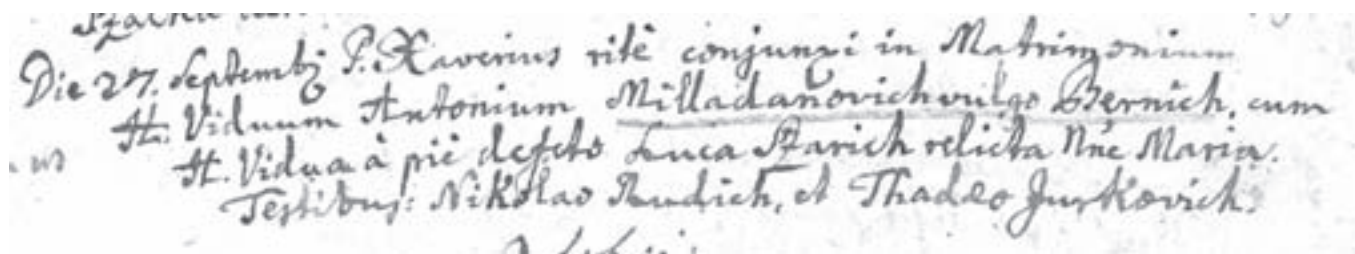 Die 27. Septembȝ P. Xaverius ritè conjunxi in Matrimonium
H. Viduum Antonium Milladanovich vulgo Bernich, cum
H. Vidua à piè defcto Luca Szarich relicta Nñe Maria.
Testibus: Nikolao Rudich, et Thadeo Jurkovich.